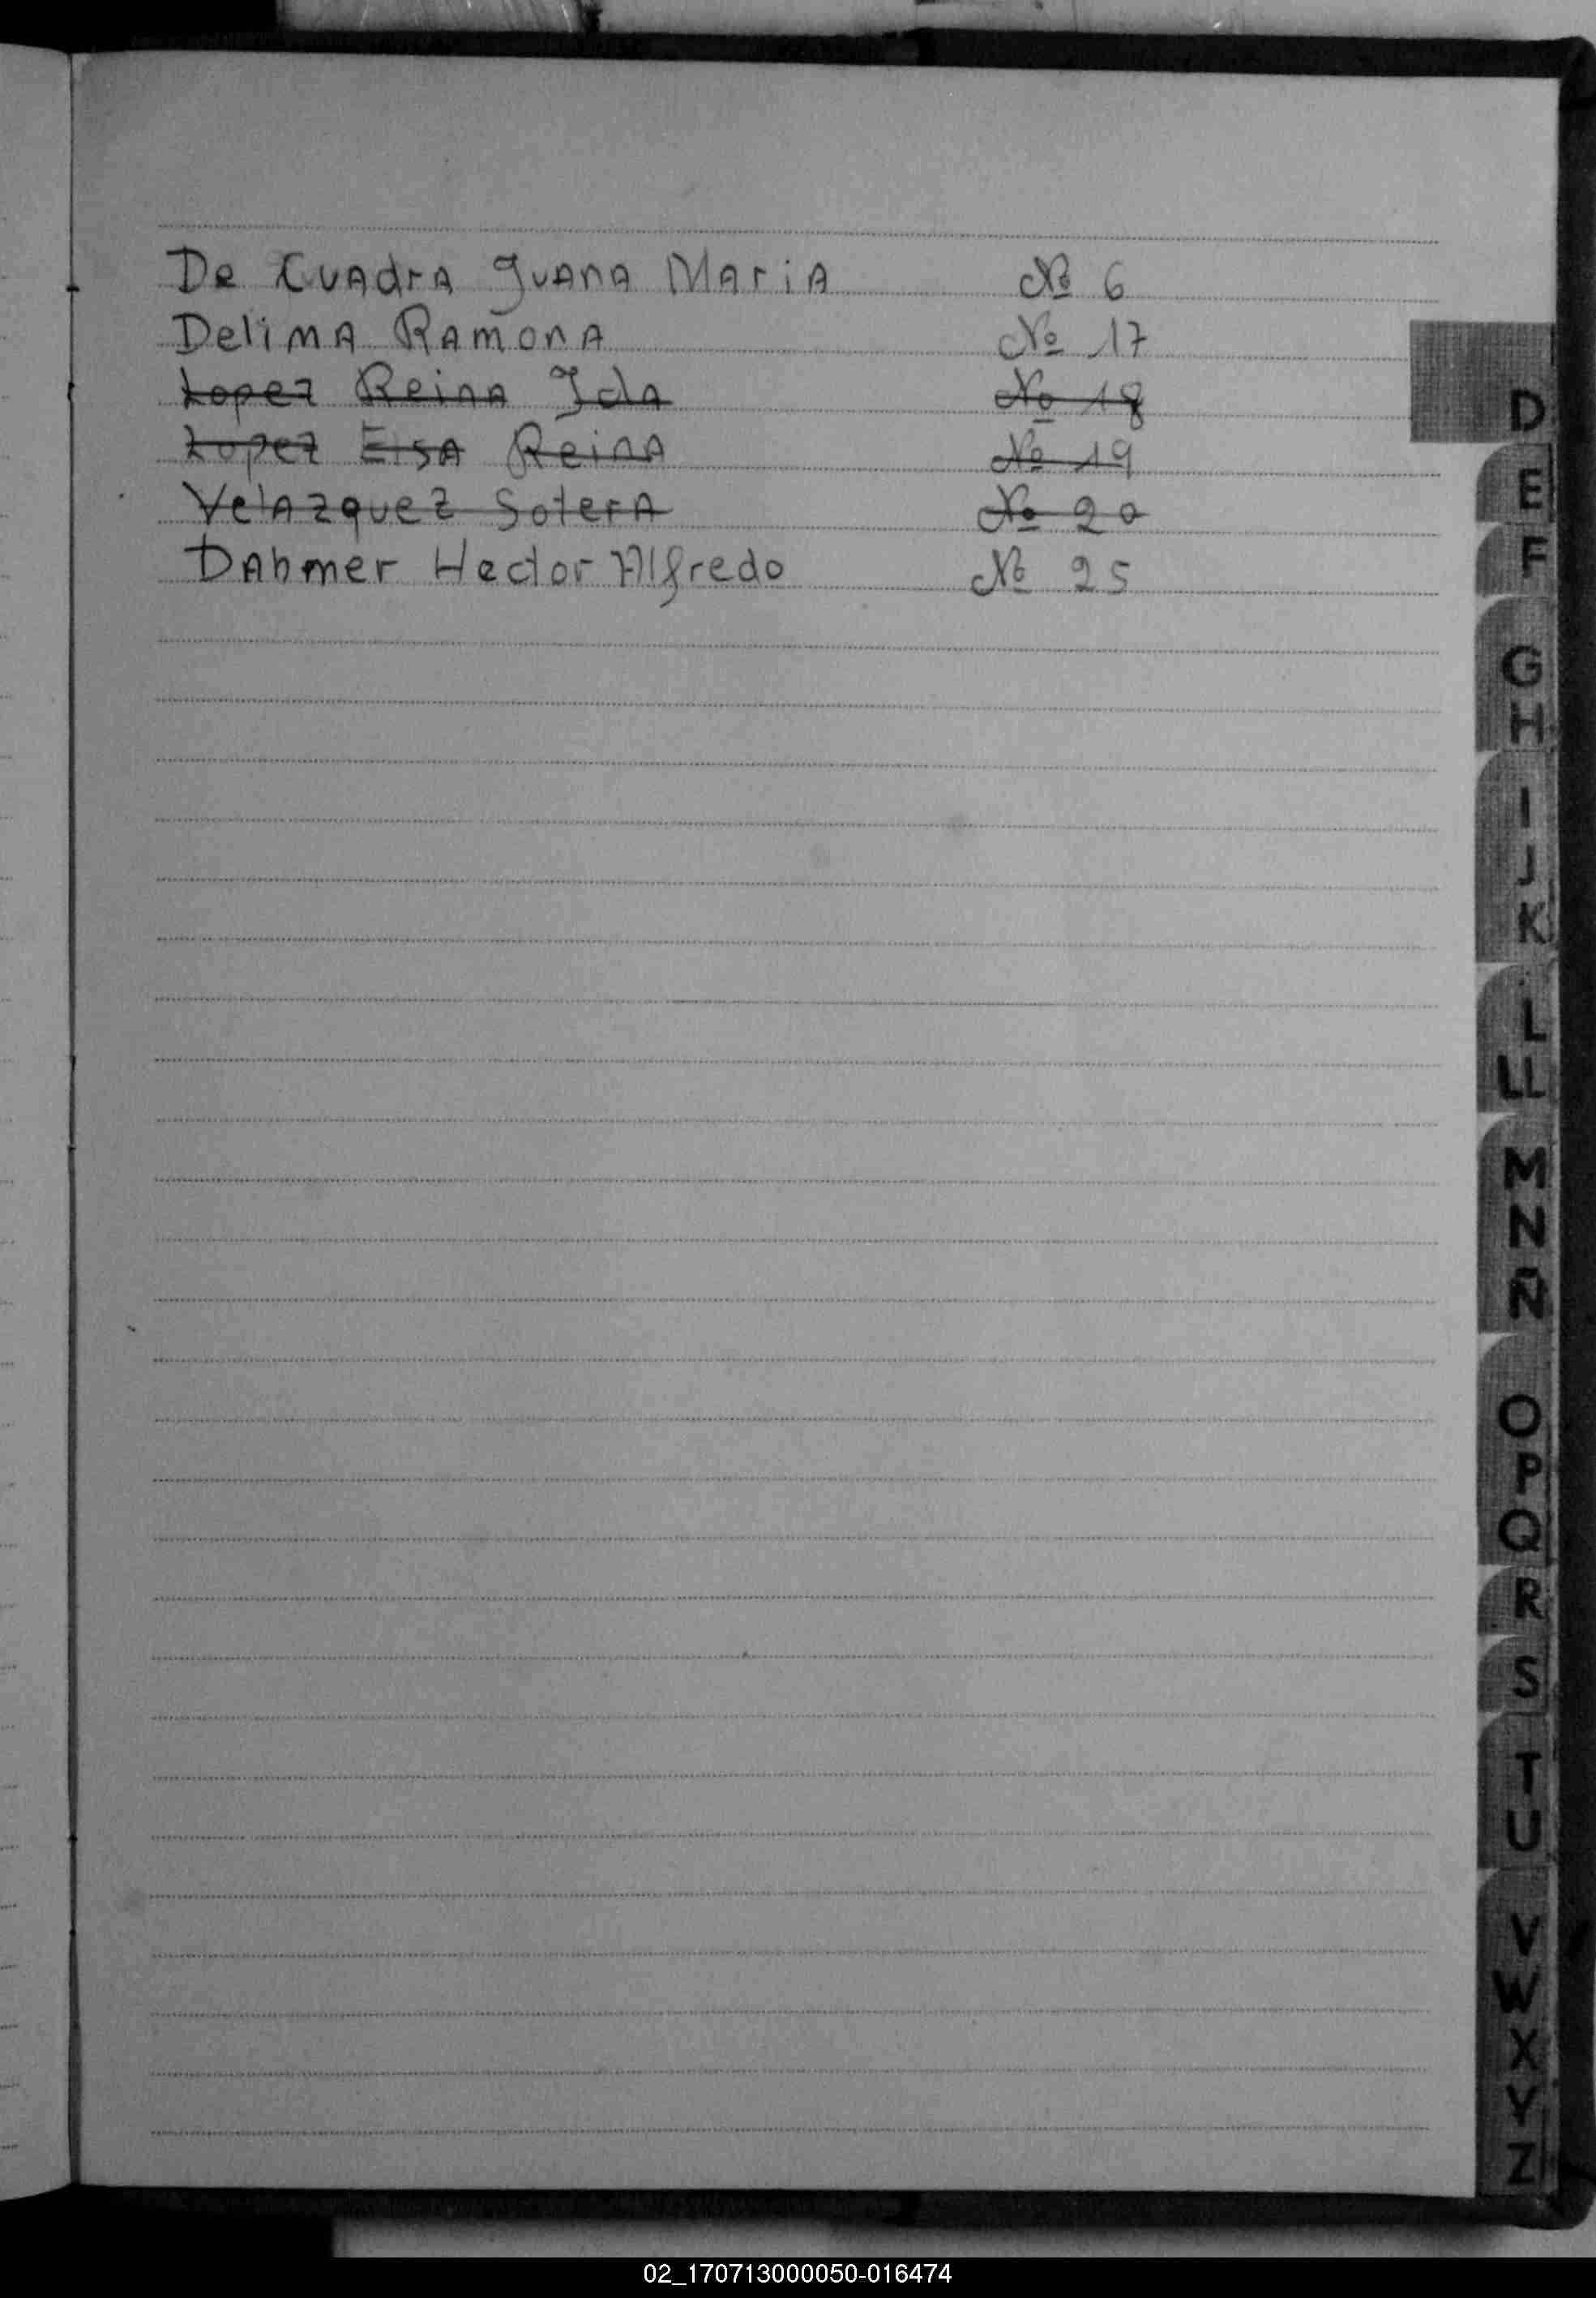 De Cuadra Juana Maria № 6
Delima Ramona № 17
Lopez Reina Ida № 18
Lopez Elsa Reina № 19
Velazquez Sotera № 20
Dahmer Hector Alfredo № 25
D
E
F
G
H
I
J
K
L
LL
M
N
Ñ
O
P
Q
R
S
T
U
V
W
X
Y
Z
02_170713000050-016474